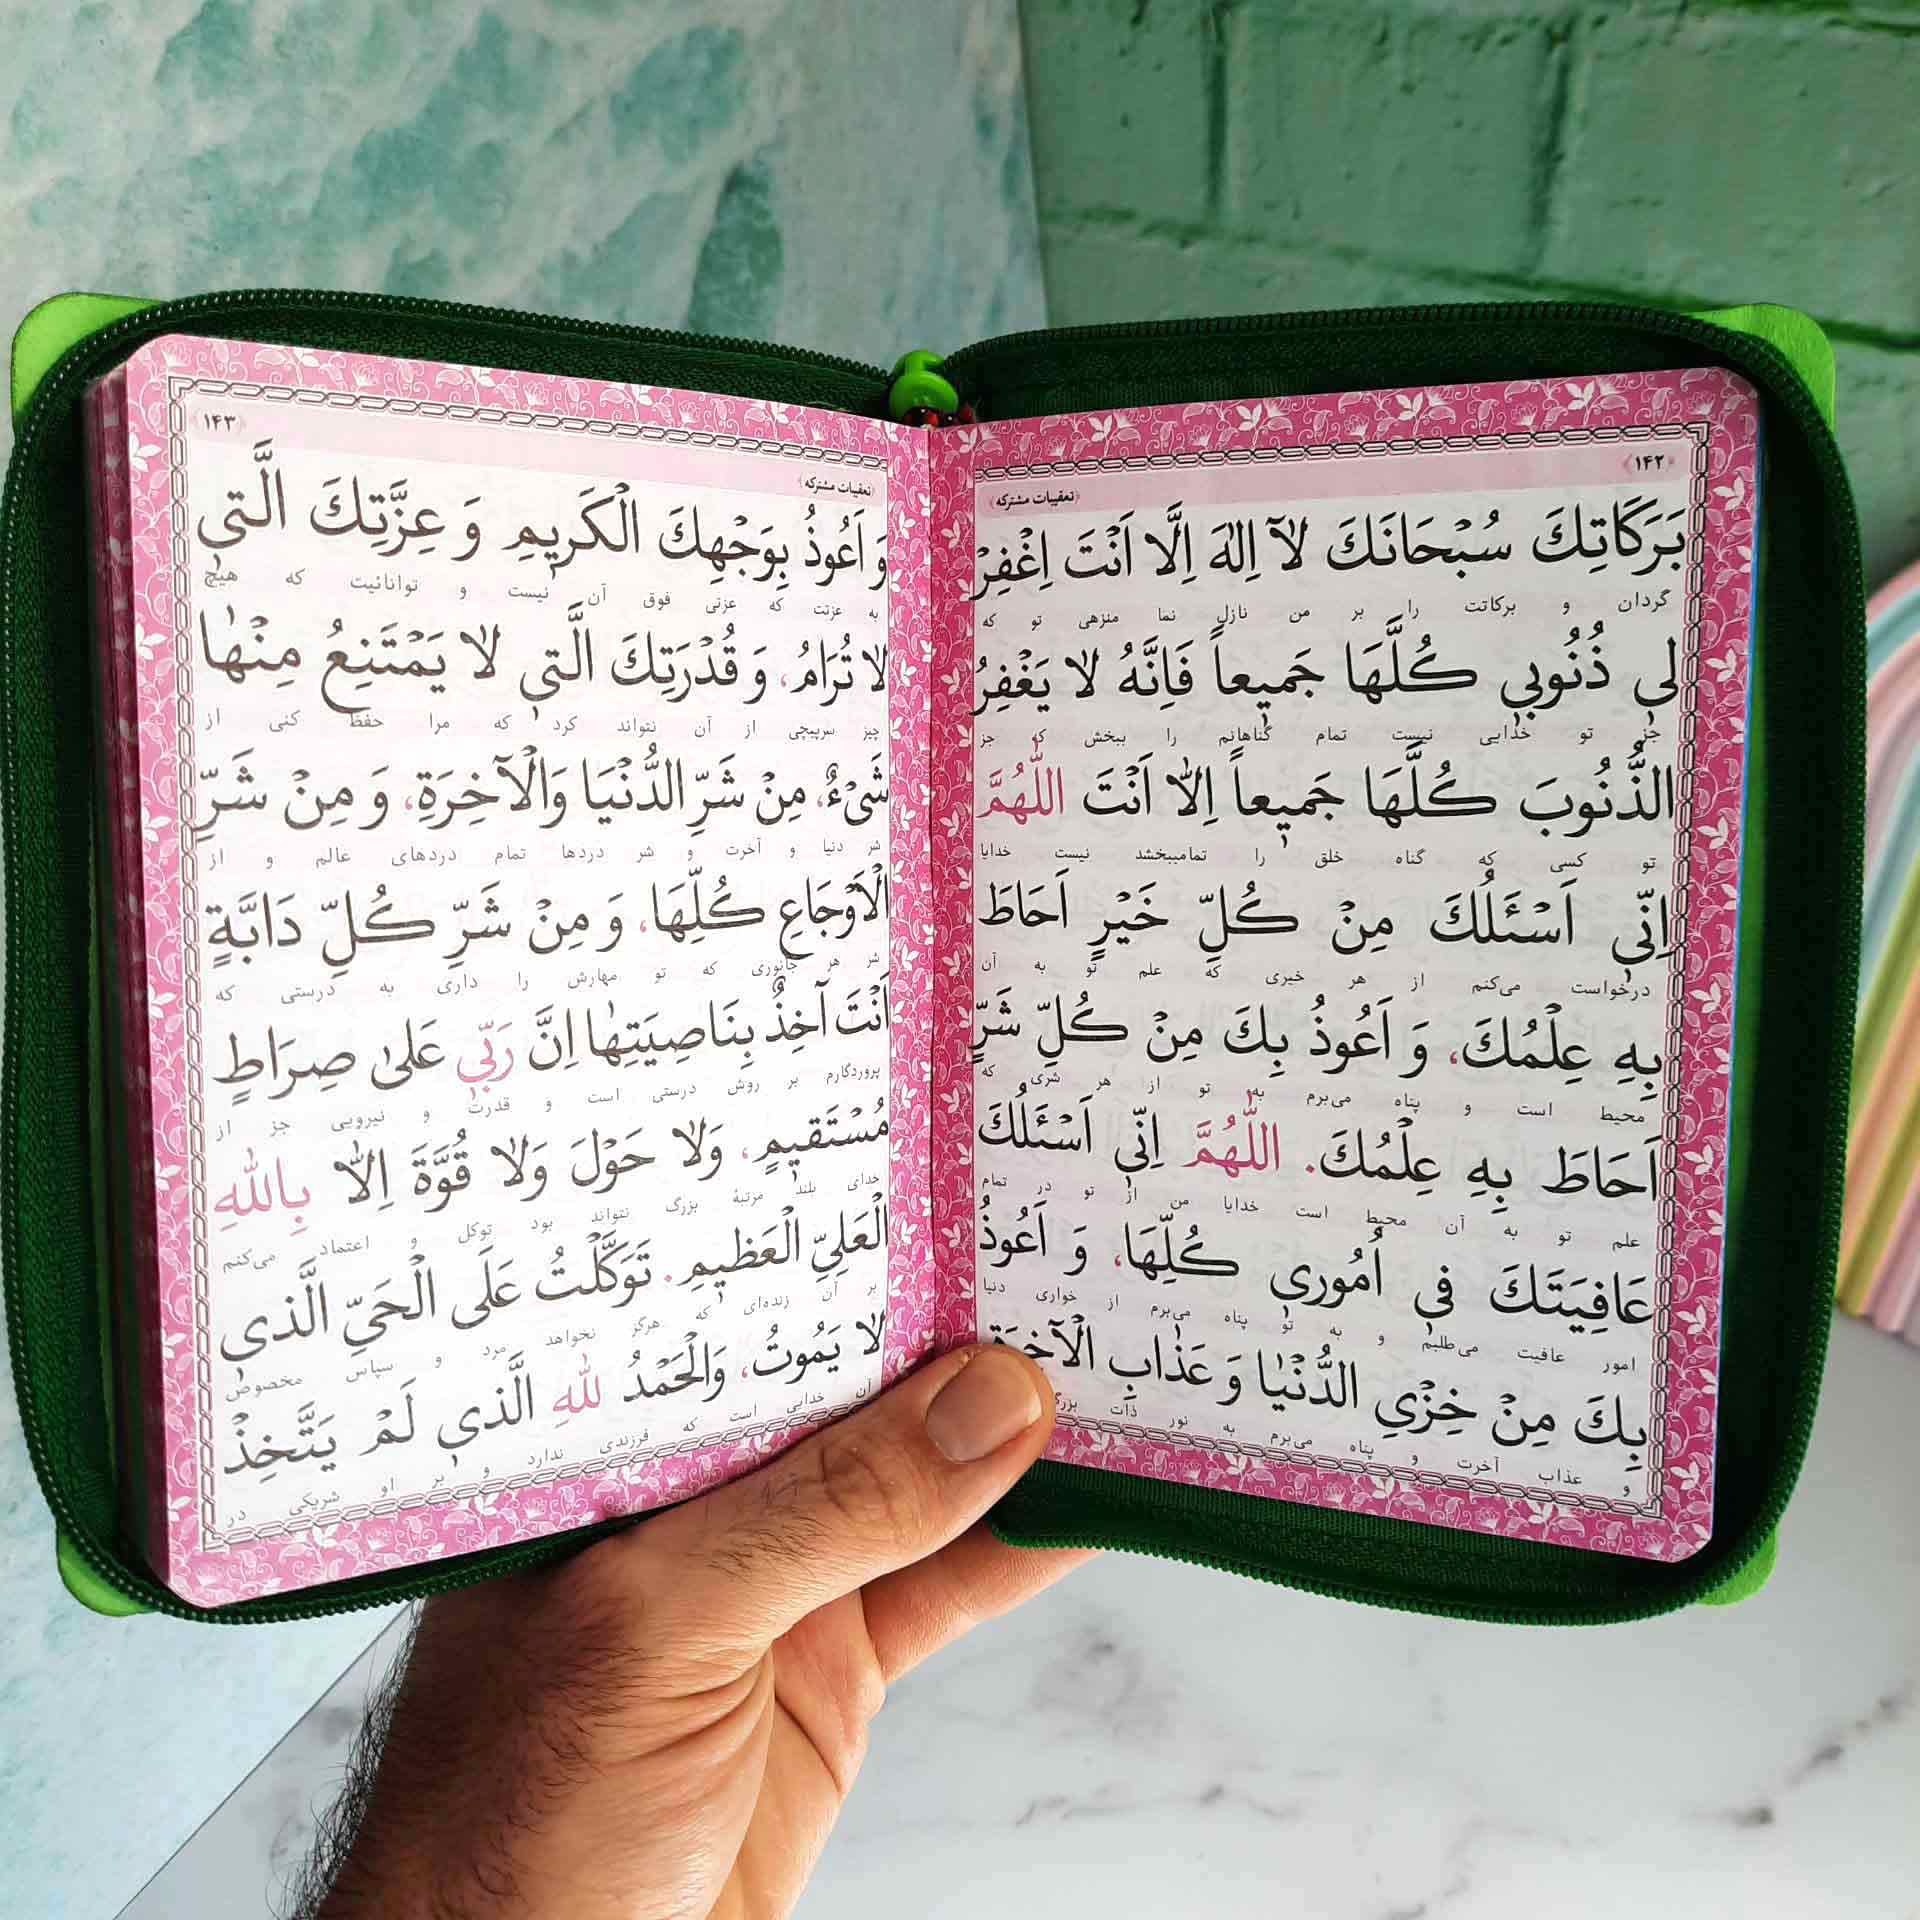 ﴿۱۴۲﴾
﴿تعقیبات مشترکه﴾
بَرَكَاتِكَ سُبْحَانَكَ لاۤ اِلٰهَ اِلَّا اَنْتَ اِغْفِرْ
گردان و برکاتت را بر من نازل نما منزهی تو که
لی ذُنُوبی كُلَّهَا جَمیعاً فَاِنَّهُ لا يَغْفِرُ
جز تو خدایی نیست تمام گناهانم را ببخش که جز
الذُّنُوبَ كُلَّهَا جَمیعاً اِلّا اَنْتَ اَللّٰهُمَّ
تو کسی که گناه خلق را تمامببخشد نیست خدایا
اِنّی اَسْئَلُكَ مِنْ كُلِّ خَيْرٍ اَحَاطَ
درخواست می‌کنم از هر خیری که علم تو به آن
بِهِ عِلْمُكَ، وَ اَعُوذُ بِكَ مِنْ كُلِّ شَرٍّ
محیط است و پناه می‌برم به تو از هر شری که
اَحَاطَ بِهِ عِلْمُكَ. اَللّٰهُمَّ اِنّی اَسْئَلُكَ
علم تو به آن محیط است خدایا من از تو در تمام
عَافِيَتَكَ فی اُمُوری كُلِّهَا، وَ اَعُوذُ
امور عافیت می‌طلبم و به تو پناه می‌برم از خواری دنیا
بِكَ مِنْ خِزْيِ الدُّنْيٰا وَ عَذَابِ الْآخِرَةِ
و عذاب آخرت و پناه می‌برم به نور ذات
﴿۱۴۳﴾
﴿تعقیبات مشترکه﴾
وَ اَعُوذُ بِوَجْهِكَ الْكَریمِ وَ عِزَّتِكَ الَّتی
به عزتت که عزتی فوق آن نیست و توانائیت که هیچ
لا تُرَامُ، وَ قُدْرَتِكَ الَّتی لا يَمْتَنِعُ مِنْهٰا
چیز سرپیچی از آن نتواند کرد که مرا حفظ کنی از
شَیْءٌ، مِنْ شَرِّ الدُّنْيَا وَالْآخِرَةِ، وَ مِنْ شَرِّ
شر دنیا و آخرت و شر دردها تمام دردهای عالم و از
الْاَوْجَاعِ كُلِّهَا، وَ مِنْ شَرِّ كُلِّ دَابَّةٍ
شر هر جانوری که تو مهارش را داری به درستی که
اَنْتَ آخِذٌ بِنَاصِيَتِهٰا اِنَّ رَبّی عَلیٰ صِرَاطٍ
پروردگارم بر روش درستی است و قدرت و نیرویی جز از
مُسْتَقیمٍ، وَلا حَوْلَ وَلا قُوَّةَ اِلّا بِاللّٰهِ
خدای بلند مرتبهٔ بزرگ نتواند بود توکل و اعتماد می‌کنم
الْعَلِیِّ الْعَظیمِ. تَوَكَّلْتُ عَلَی الْحَیِّ الَّذی
بر آن زنده‌ای که هرگز نخواهد مرد و سپاس مخصوص
لا يَمُوتُ، وَالْحَمْدُ لِلّٰهِ الَّذی لَمْ يَتَّخِذْ
آن خدایی است که فرزندی ندارد و بر او شریکی در